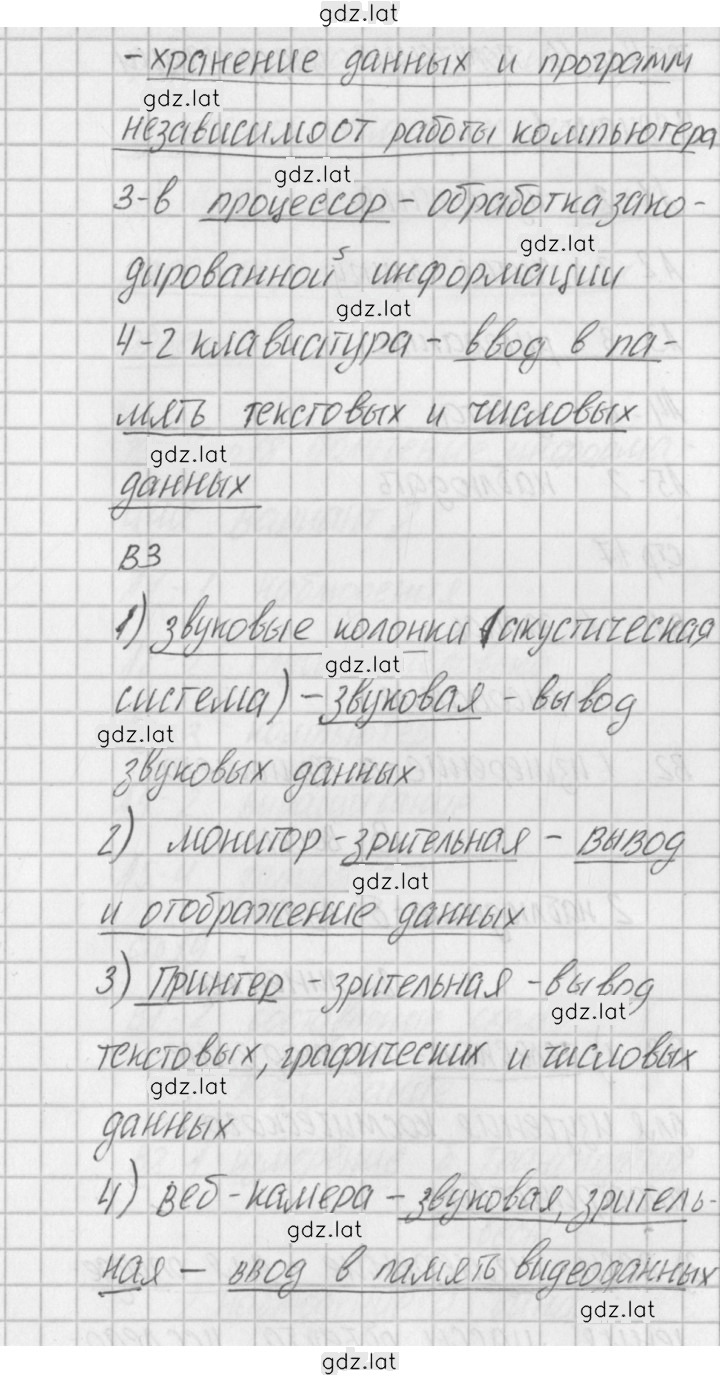 gdz.lat
-хранение данных и программ
gdz.lat
независимо от работы компьютера
gdz.lat
3-в процессор - обработка зако-
gdz.lat
дированной информации
gdz.lat
4-г клавиатура - ввод в па-
мять текстовых и числовых
gdz.lat
данных
В3
1) звуковые колонки (акустическая
gdz.lat
система) - звуковая - вывод
gdz.lat
звуковых данных
2) монитор - зрительная - вывод
gdz.lat
и отображение данных
3) Принтер - зрительная - вывод
gdz.lat
текстовых, графических и числовых
gdz.lat
данных
4) веб-камера - звуковая, зритель-
gdz.lat
ная - ввод в память видеоданных
gdz.lat
gdz.lat